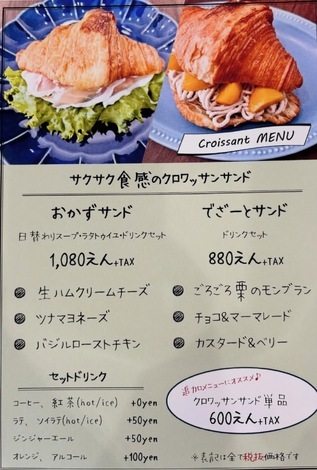 Croissant MENU
サクサク食感のクロワッサンサンド
おかずサンド
日替わりスープ・ラタトゥイユ・ドリンクセット
1,080えん+TAX
生ハムクリームチーズ
ツナマヨネーズ
バジルローストチキン
でざーとサンド
ドリンクセット
880えん+TAX
ごろごろ栗のモンブラン
チョコ&マーマレード
カスタード&ベリー
セットドリンク
コーヒー、紅茶(hot/ice) +0yen
ラテ、ソイラテ(hot/ice) +50yen
ジンジャーエール +50yen
オレンジ、アルコール +100yen
追加メニューにオススメ♪
クロワッサンサンド単品
600えん+TAX
※表記は全て税抜価格です